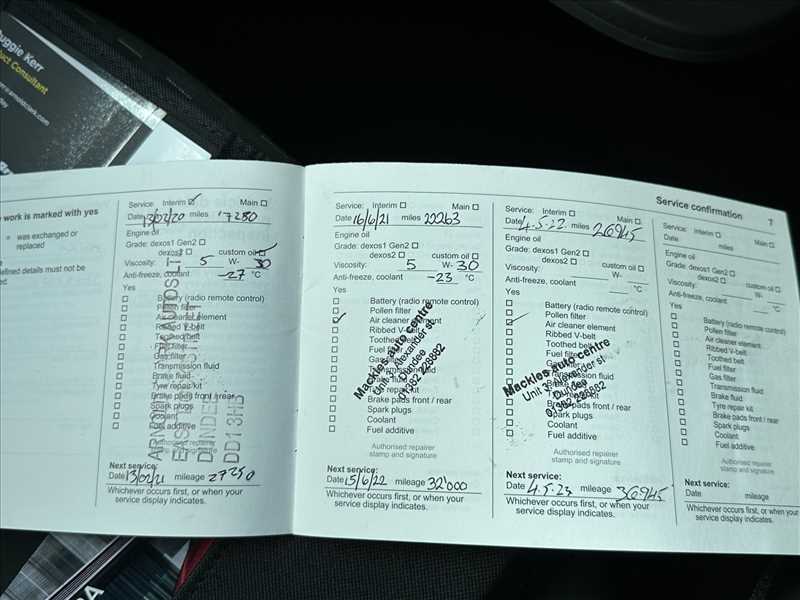 uggie Kerr
ct Consultant
arnoldclark.com
work is marked with yes
= was exchanged or
replaced
efined details must not be
ed.
Service: Interim ☑ Main ☐
Date 13/02/20 miles 17250
Engine oil
Grade: dexos1 Gen2 ☐
dexos2 ☐ custom oil ☑
Viscosity: 5 W- 30
Anti-freeze, coolant -27 °C
Yes
☐ Battery (radio remote control)
☐ Pollen filter
☐ Air cleaner element
☐ Ribbed V-belt
☐ Toothed belt
☐ Fuel filter
☐ Gas filter
☐ Transmission fluid
☐ Brake fluid
☐ Tyre repair kit
☐ Brake pads front / rear
☐ Spark plugs
☐ Coolant
☐ Fuel additive
Authorised repairer
stamp and signature
DUNDEE
DD1 3HB
Next service:
Date 13/02/21 mileage 27250
Whichever occurs first, or when your
service display indicates.
Service: Interim ☐ Main ☐
Date 16/6/21 miles 22263
Engine oil
Grade: dexos1 Gen2 ☐
dexos2 ☐ custom oil ☐
Viscosity: 5 W- 30
Anti-freeze, coolant -23 °C
Yes
☐ Battery (radio remote control)
☐ Pollen filter
☑ Air cleaner element
☐ Ribbed V-belt
☐ Toothed belt
☐ Fuel filter
☐ Gas filter
☐ Transmission fluid
☐ Brake fluid
☐ Tyre repair kit
☐ Brake pads front / rear
☐ Spark plugs
☐ Coolant
☐ Fuel additive
Mackles auto centre
Unit 3 Alexander st
Dundee
01382 228882
Authorised repairer
stamp and signature
Next service:
Date 15/6/22 mileage 32'000
Whichever occurs first, or when your
service display indicates.
Service confirmation 7
Service: Interim ☐ Main ☐
Date 4.5.22 miles 26945
Engine oil
Grade: dexos1 Gen2 ☐
dexos2 ☐ custom oil ☐
Viscosity: W-
Anti-freeze, coolant °C
Yes
☐ Battery (radio remote control)
☐ Pollen filter
☑ Air cleaner element
☐ Ribbed V-belt
☐ Toothed belt
☐ Fuel filter
☐ Gas filter
☐ Transmission fluid
☐ Brake fluid
☐ Tyre repair kit
☐ Brake pads front / rear
☐ Spark plugs
☐ Coolant
☐ Fuel additive
Mackles auto centre
Unit 3 Alexander st
Dundee
01382 228882
Authorised repairer
stamp and signature
Next service:
Date 4.5.23 mileage 36945
Whichever occurs first, or when your
service display indicates.
Service: Interim ☐ Main ☐
Date miles
Engine oil
Grade: dexos1 Gen2 ☐
dexos2 ☐ custom oil ☐
Viscosity: W-
Anti-freeze, coolant °C
Yes
☐ Battery (radio remote control)
☐ Pollen filter
☐ Air cleaner element
☐ Ribbed V-belt
☐ Toothed belt
☐ Fuel filter
☐ Gas filter
☐ Transmission fluid
☐ Brake fluid
☐ Tyre repair kit
☐ Brake pads front / rear
☐ Spark plugs
☐ Coolant
☐ Fuel additive
Authorised repairer
stamp and signature
Next service:
Date mileage
Whichever occurs first, or when your
service display indicates.